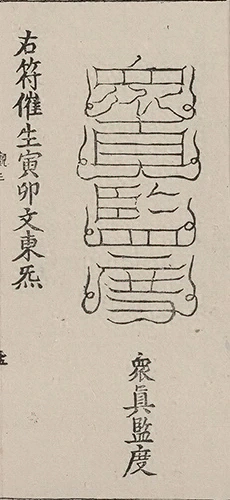 衆眞監度
右符催生寅卯文東炁